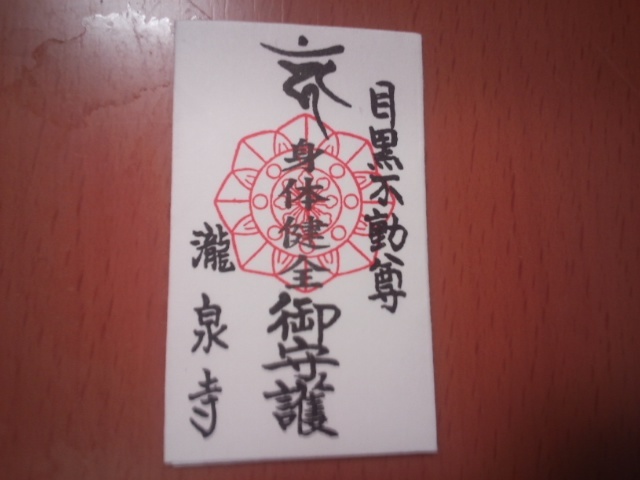 目黒不動尊
身体健全御守護
瀧泉寺